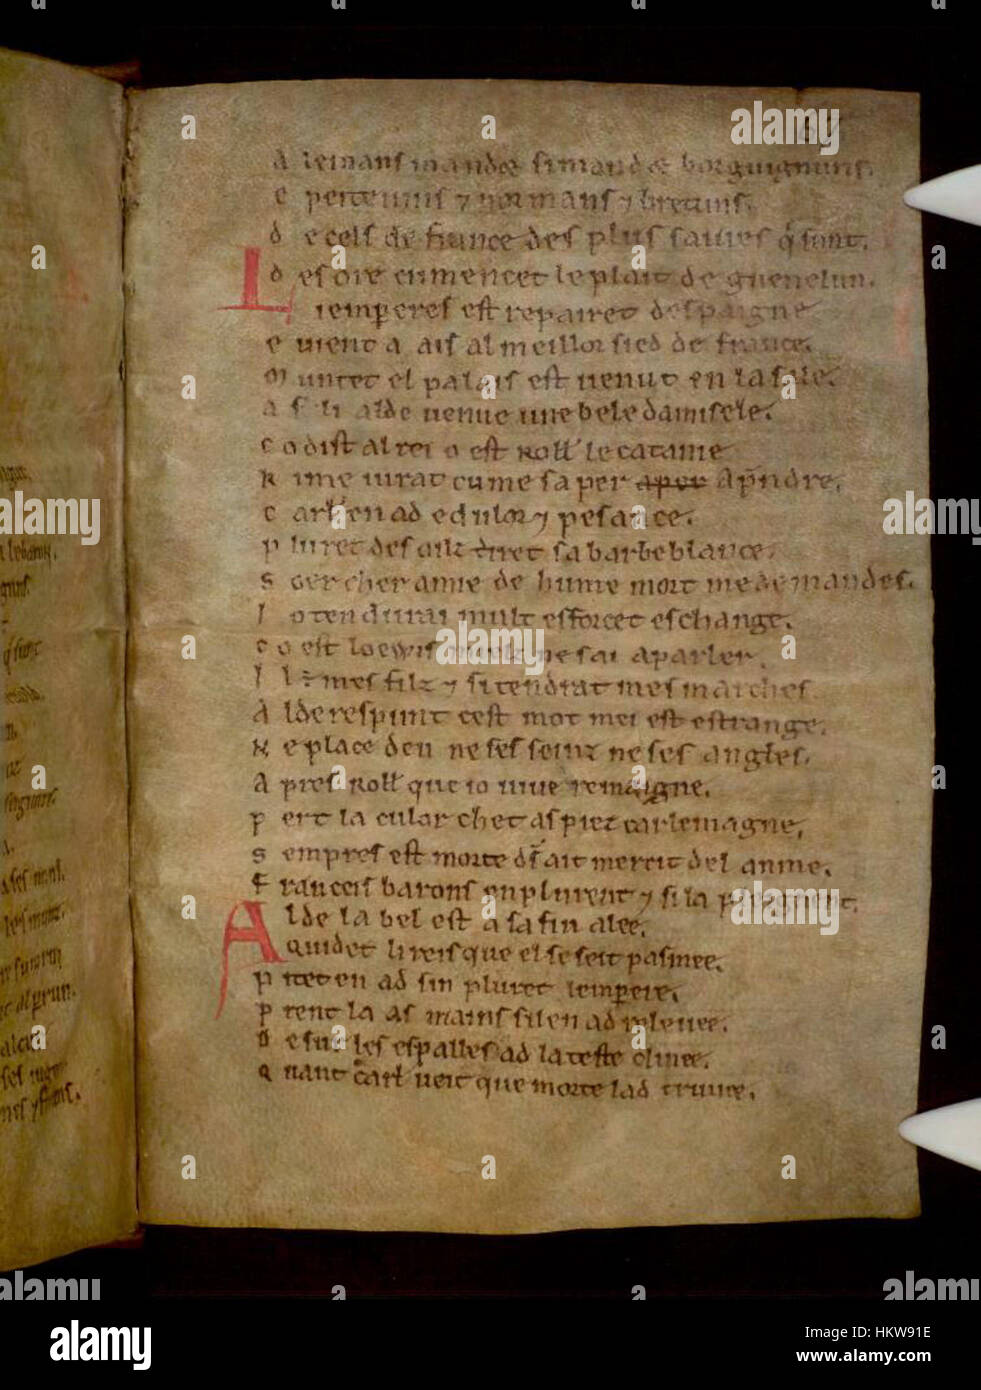 67
A lemans mandet si mandet borguignuns.
e peitevins ⁊ normans ⁊ bretuns.
d e cels de france des plus saives q̇ sunt.
d es ore cumencet le plait de guenelun.
L i emperes est repairet despaigne
e vient a ais al meillor sied de france.
M untet el palais est venut en la sale.
A s li alde venue une bele damisele.
C o dist al rei o est Roll̃ le catanie
K i me iurat cume sa per aper a p̃ndre.
C arl̃ en ad e dulor ⁊ pesance.
P luret des oilz tiret sa barbe blance.
S oer cher amie de hume mort me demandes.
I o ten durai mult esforcet eschange.
C o est loewis ne sai a parler.
I l est mes filz ⁊ si tendrat mes marches
A lde respunt cest mot mei est estrange.
N e place deu ne ses seinz ne ses angles.
A pres Roll̃ que io vive remaigne.
P ert la culor chet as piez carlemagne.
S empres est morte d̃s ait mercit del anme.
F ranceis barons en plurent ⁊ si la pleignent.
A lde la bel est a sa fin alee.
Q uidet li reis que el se seit pasmee.
P itet en ad sin pluret lemperere.
P rent la as mains si len ad relevee.
D esur les espalles ad la teste clinee.
Q uant Carl̃ veit que morte lad truvee.
alamy
Image ID: HKW91E
www.alamy.com